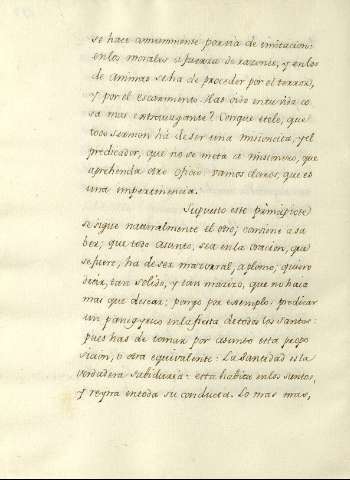 se hace comunmente por via de imitacion:
en los morales à fuerza de razones, y en los
de Animas se ha de proceder por el terror,
y por el escarmiento. Has oido en tu vida co
sa mas extravagante? Con que etelo, que
todo Sermon há de ser una misioncita, y el
predicador, que no se meta a misionero, que
aprehenda otro oficio vamos claros, que es
una impertinencia.
Supuesto este principio
se sigue naturalmente el otro; conviene a sa
ber, que todo asunto, sea en la oracion, que
se fuere, ha de ser magistral, a plomo; quiero
decir, tan solido, y tan mazizo, que no haia
mas que desear: pongo por exemplo: predicar
un panegyrico en la fiesta de todos los Santos:
pues has de tomar por asunto esta propo
sicion, ò otra equivalente: La Santidad es la
verdadera sabiduria: esta habita en los Santos,
y reyna en toda su conducta. Lo mas mas,